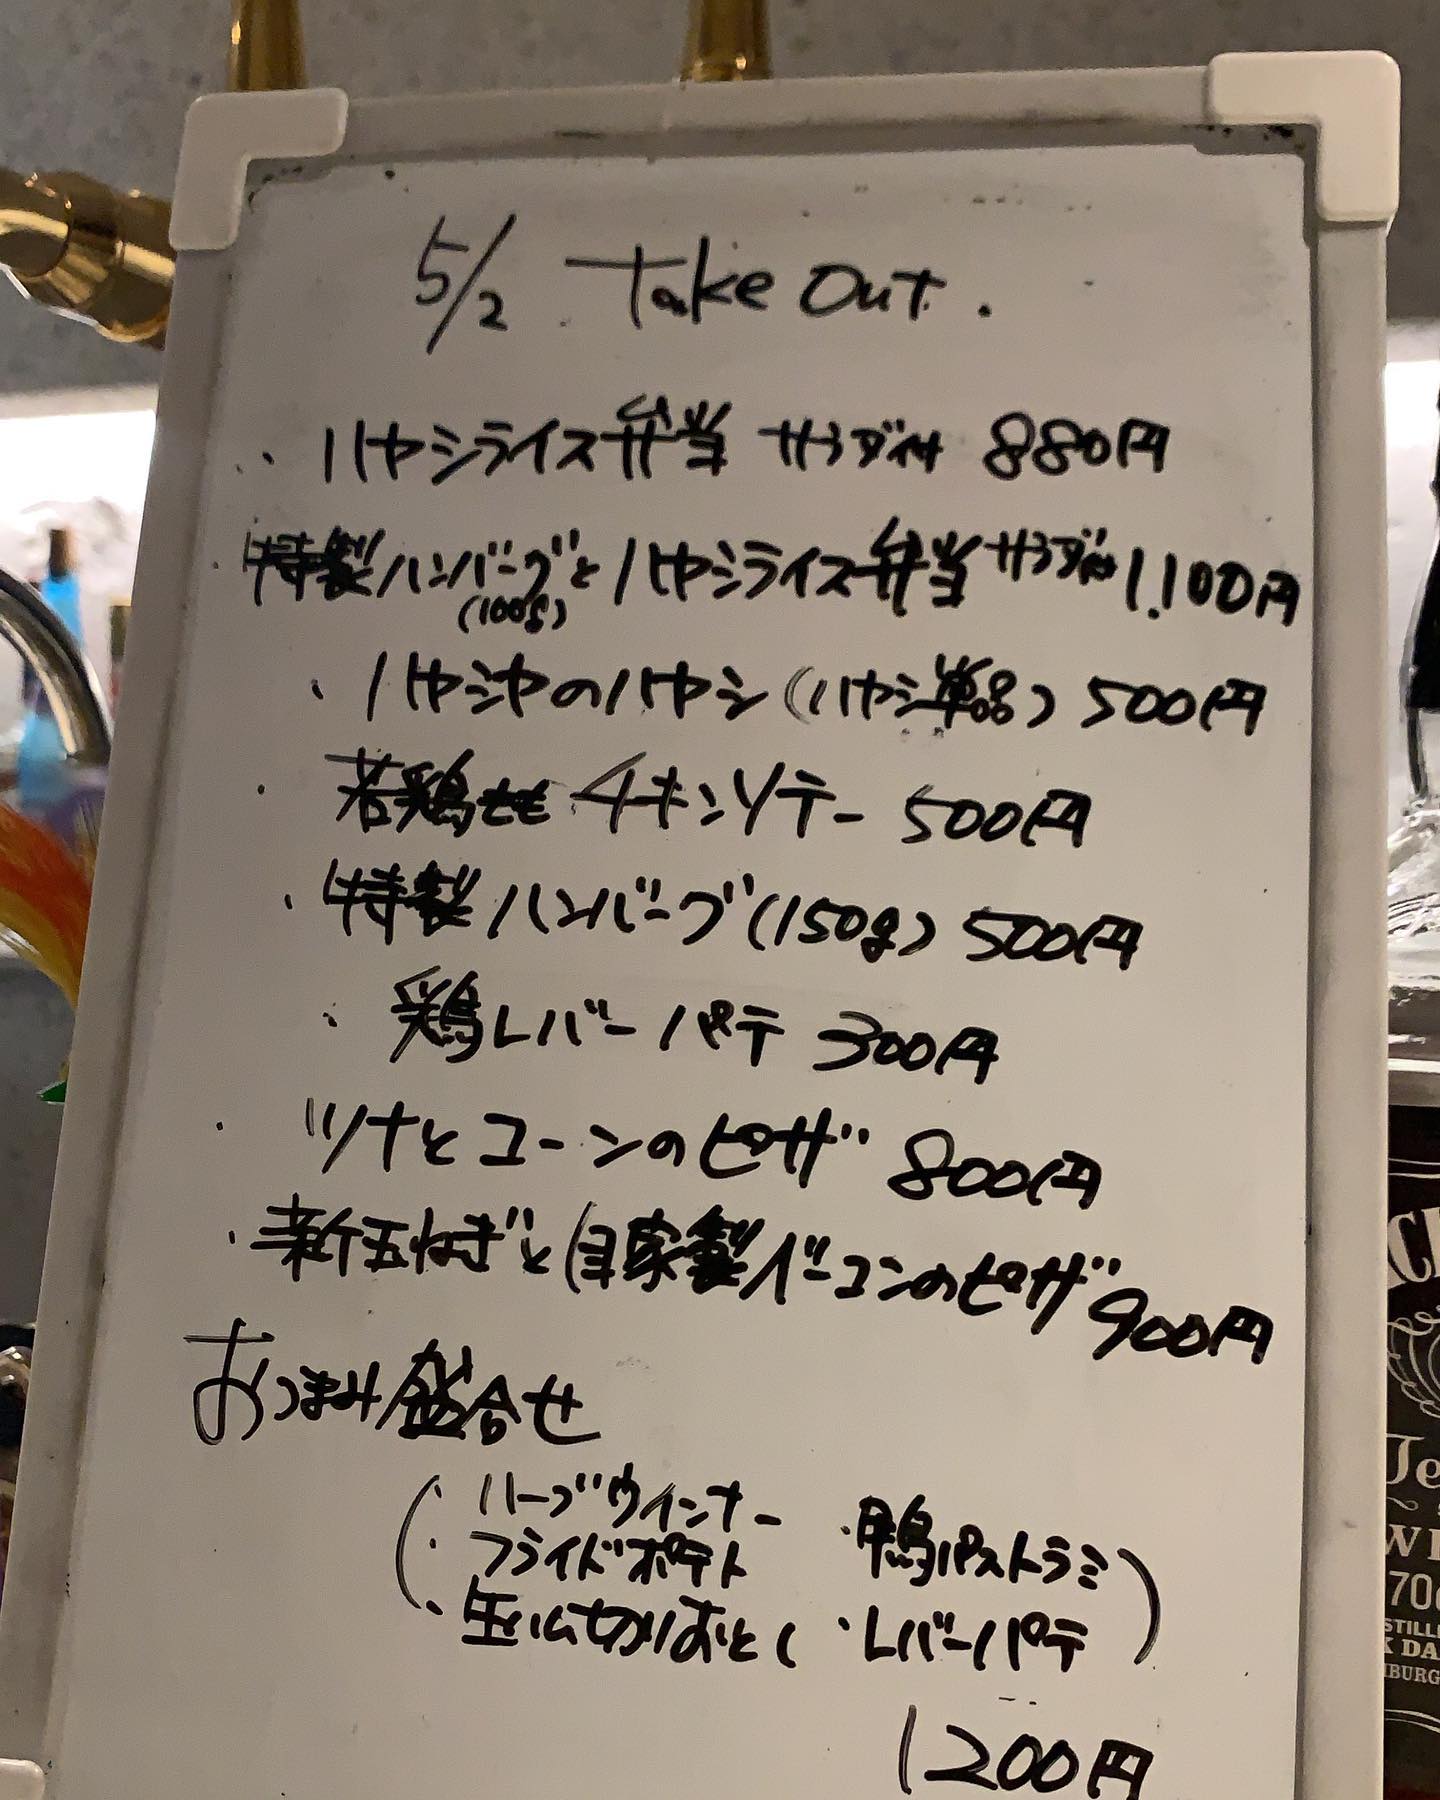 5/2 Take Out.
・ハヤシライス弁当 サラダ付 880円
・特製ハンバーグとハヤシライス弁当 サラダ付 1.100円
(100g)
・ハヤシヤのハヤシ(ハヤシ単品) 500円
・若鶏もも チキンソテー 500円
・特製ハンバーグ(150g) 500円
・鶏レバーパテ 300円
・ツナとコーンのピザ 800円
・新玉ねぎと自家製ベーコンのピザ 900円
おつまみ盛合せ
(・ハーブウインナー ・鴨パストラミ
・フライドポテト
・生ハム切りおとし ・レバーパテ)
1200円
Je
70c